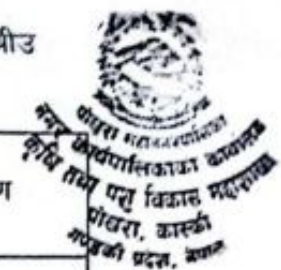 पीउ
पोखरा महानगरपालिका
नगर कार्यपालिकाको कार्यालय
कृषि तथा पशु विकास महाशाखा
ग
पोखरा, कास्की
गण्डकी प्रदेश, नेपाल